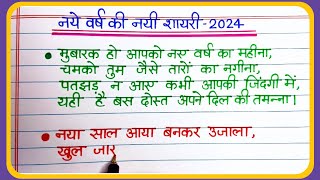 नये वर्ष की नयी शायरी-2024
मुबारक हो आपको नए वर्ष का महीना,
चमको तुम जैसे तारों का नगीना,
पतझड़ न आए कभी आपकी जिंदगी में,
यही है बस दोस्त अपने दिल की तमन्ना।
नया साल आया बनकर उजाला,
खुल जार